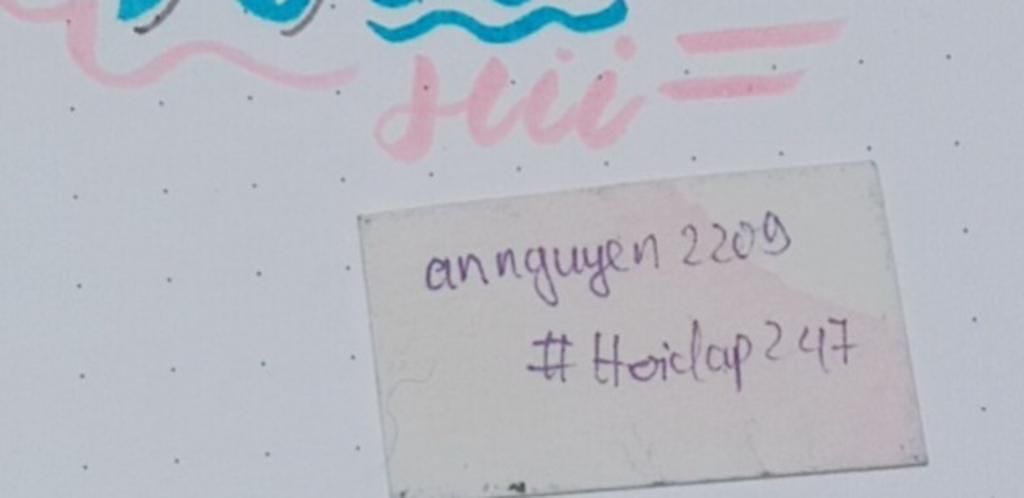 sui =
annguyen 2209
#Hoidap247